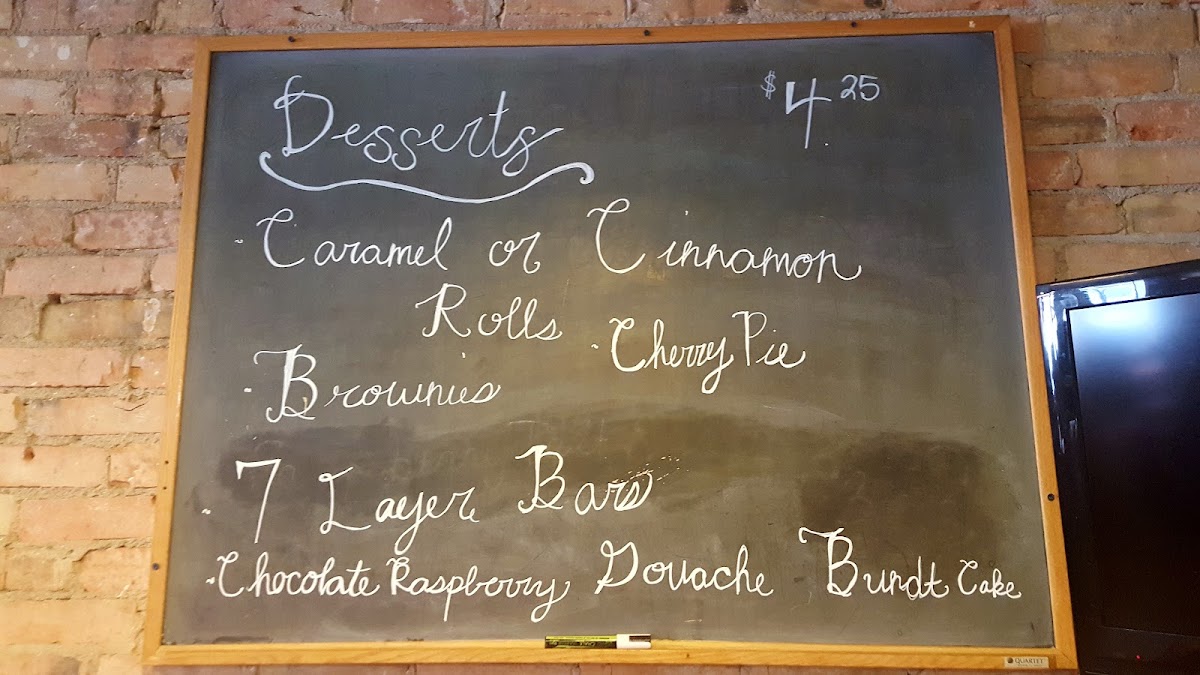 Desserts $4.25
- Caramel or Cinnamon
Rolls
- Cherry Pie
- Brownies
- 7 Layer Bars
- Chocolate Raspberry Gouache Bundt Cake
QUARTET